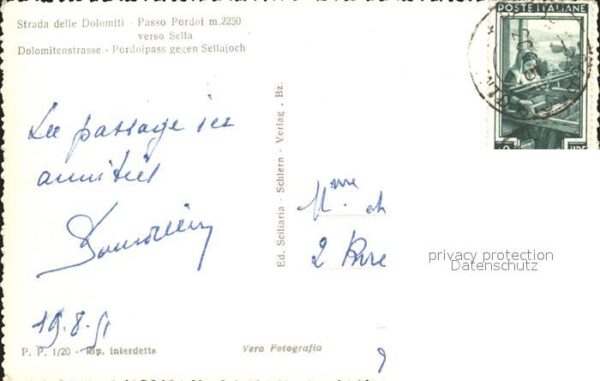 Strada delle Dolomiti - Passo Pordoi m. 2250
verso Sella
Dolomitenstrasse - Pordoipass gegen Sellajoch
POSTE ITALIANE
LIRE
De passage ici
amitiés
19.8.51
Ed. Sciliaria - Schlern - Verlag, Bz.
Mme
2 Rue
privacy protection
Datenschutz
P. P. 1/20 - Rip. interdetta
Vera Fotografia